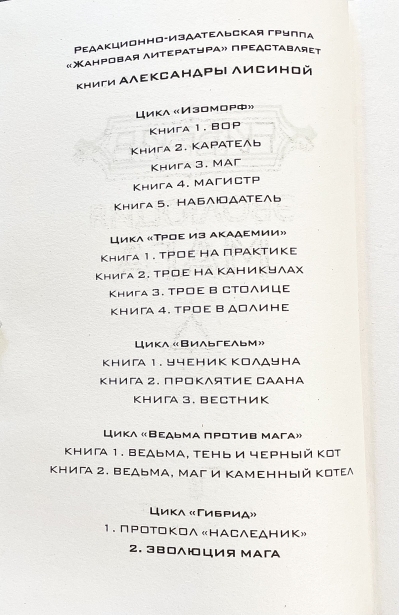 Редакционно-издательская группа
«Жанровая литература» представляет
книги АЛЕКСАНДРЫ ЛИСИНОЙ
Цикл «Изоморф»
Книга 1. ВОР
Книга 2. КАРАТЕЛЬ
Книга 3. МАГ
Книга 4. МАГИСТР
Книга 5. НАБЛЮДАТЕЛЬ
Цикл «Трое из академии»
Книга 1. ТРОЕ НА ПРАКТИКЕ
Книга 2. ТРОЕ НА КАНИКУЛАХ
Книга 3. ТРОЕ В СТОЛИЦЕ
Книга 4. ТРОЕ В ДОЛИНЕ
Цикл «Вильгельм»
Книга 1. УЧЕНИК КОЛДУНА
Книга 2. ПРОКЛЯТИЕ СААНА
Книга 3. ВЕСТНИК
Цикл «Ведьма против мага»
Книга 1. ВЕДЬМА, ТЕНЬ И ЧЕРНЫЙ КОТ
Книга 2. ВЕДЬМА, МАГ И КАМЕННЫЙ КОТЕЛ
Цикл «Гибрид»
1. ПРОТОКОЛ «НАСЛЕДНИК»
2. ЭВОЛЮЦИЯ МАГА